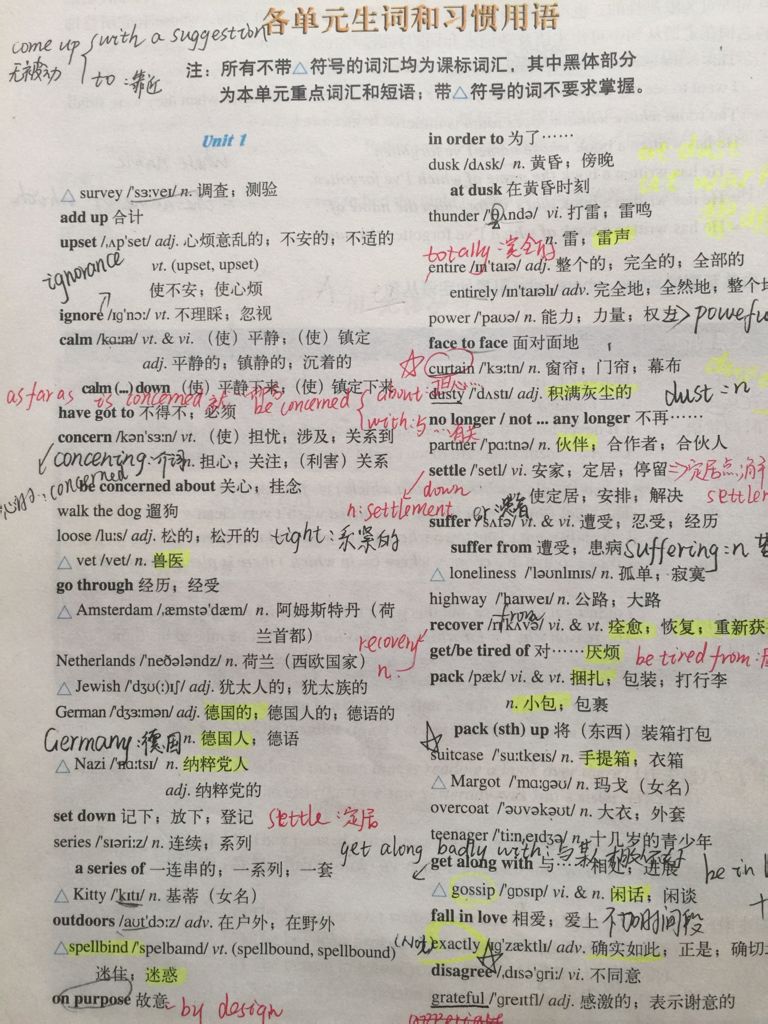 各单元生词和习惯用语
come up with a suggestion
无被动
to:靠近
注:所有不带△符号的词汇均为课标词汇,其中黑体部分
为本单元重点词汇和短语;带△符号的词不要求掌握。
Unit 1
△ survey /'sɜ:veɪ/ n. 调查;测验
add up 合计
upset /ˌʌp'set/ adj. 心烦意乱的;不安的;不适的
vt. (upset, upset)
使不安;使心烦
ignorance
ignore /ɪg'nɔ:/ vt. 不理睬;忽视
calm /kɑ:m/ vt. & vi. (使)平静;(使)镇定
adj. 平静的;镇静的;沉着的
calm (...) down (使)平静下来;(使)镇定下来
as far as is concerned
be concerned about:担心
with:与…有关
have got to 不得不;必须
concern /kən'sɜ:n/ vt. (使)担忧;涉及;关系到
concening:介词
n. 担心;关注;(利害)关系
concerned
be concerned about 关心;挂念
walk the dog 遛狗
n:settlement
down
loose /lu:s/ adj. 松的;松开的
tight:系紧的
△ vet /vet/ n. 兽医
go through 经历;经受
△ Amsterdam /ˌæmstə'dæm/ n. 阿姆斯特丹(荷
兰首都)
recovery
n.
Netherlands /'neðələndz/ n. 荷兰(西欧国家)
△ Jewish /'dʒu(:)ɪʃ/ adj. 犹太人的;犹太族的
German /'dʒɜ:mən/ adj. 德国的;德国人的;德语的
Germany:德国
n. 德国人;德语
△ Nazi /'nɑ:tsɪ/ n. 纳粹党人
adj. 纳粹党的
set down 记下;放下;登记
settle:定居
series /'sɪəri:z/ n. 连续;系列
a series of 一连串的;一系列;一套
△ Kitty /'kɪtɪ/ n. 基蒂(女名)
outdoors /ˌaʊt'dɔ:z/ adv. 在户外;在野外
△ spellbind /'spelbaɪnd/ vt. (spellbound, spellbound)
迷住;迷惑
on purpose 故意
by design
in order to 为了……
dusk /dʌsk/ n. 黄昏;傍晚
at dusk 在黄昏时刻
thunder /'θʌndə/ vi. 打雷;雷鸣
n. 雷;雷声
totally:完全的
entire /ɪn'taɪə/ adj. 整个的;完全的;全部的
entirely /ɪn'taɪəlɪ/ adv. 完全地;全然地;整个地
power /'paʊə/ n. 能力;力量;权力
face to face 面对面地
curtain /'kɜ:tn/ n. 窗帘;门帘;幕布
dusty /'dʌstɪ/ adj. 积满灰尘的
dust = n
no longer / not ... any longer 不再……
partner /'pɑ:tnə/ n. 伙伴;合作者;合伙人
settle /'setl/ vi. 安家;定居;停留
vt. 使定居;安排;解决
suffer /'sʌfə/ vt. & vi. 遭受;忍受;经历
suffer from 遭受;患病
suffering = n
△ loneliness /'ləʊnlɪnɪs/ n. 孤单;寂寞
highway /'haɪweɪ/ n. 公路;大路
from
recover /rɪ'kʌvə/ vi. & vt. 痊愈;恢复;重新获
get/be tired of 对……厌烦
be tired from:
pack /pæk/ vi. & vt. 捆扎;包装;打行李
n. 小包;包裹
pack (sth) up 将(东西)装箱打包
suitcase /'su:tkeɪs/ n. 手提箱;衣箱
△ Margot /'mɑ:gəʊ/ n. 玛戈(女名)
overcoat /'əʊvəkəʊt/ n. 大衣;外套
teenager /'ti:neɪdʒə/ n. 十几岁的青少年
get along badly with:
get along with 与……相处;进展
be in
△ gossip /'gɒsɪp/ vi. & n. 闲话;闲谈
fall in love 相爱;爱上
不加时间段
(Not)
exactly /ɪg'zæktlɪ/ adv. 确实如此;正是;确切
disagree /ˌdɪsə'gri:/ vi. 不同意
grateful /'greɪtfl/ adj. 感激的;表示谢意的